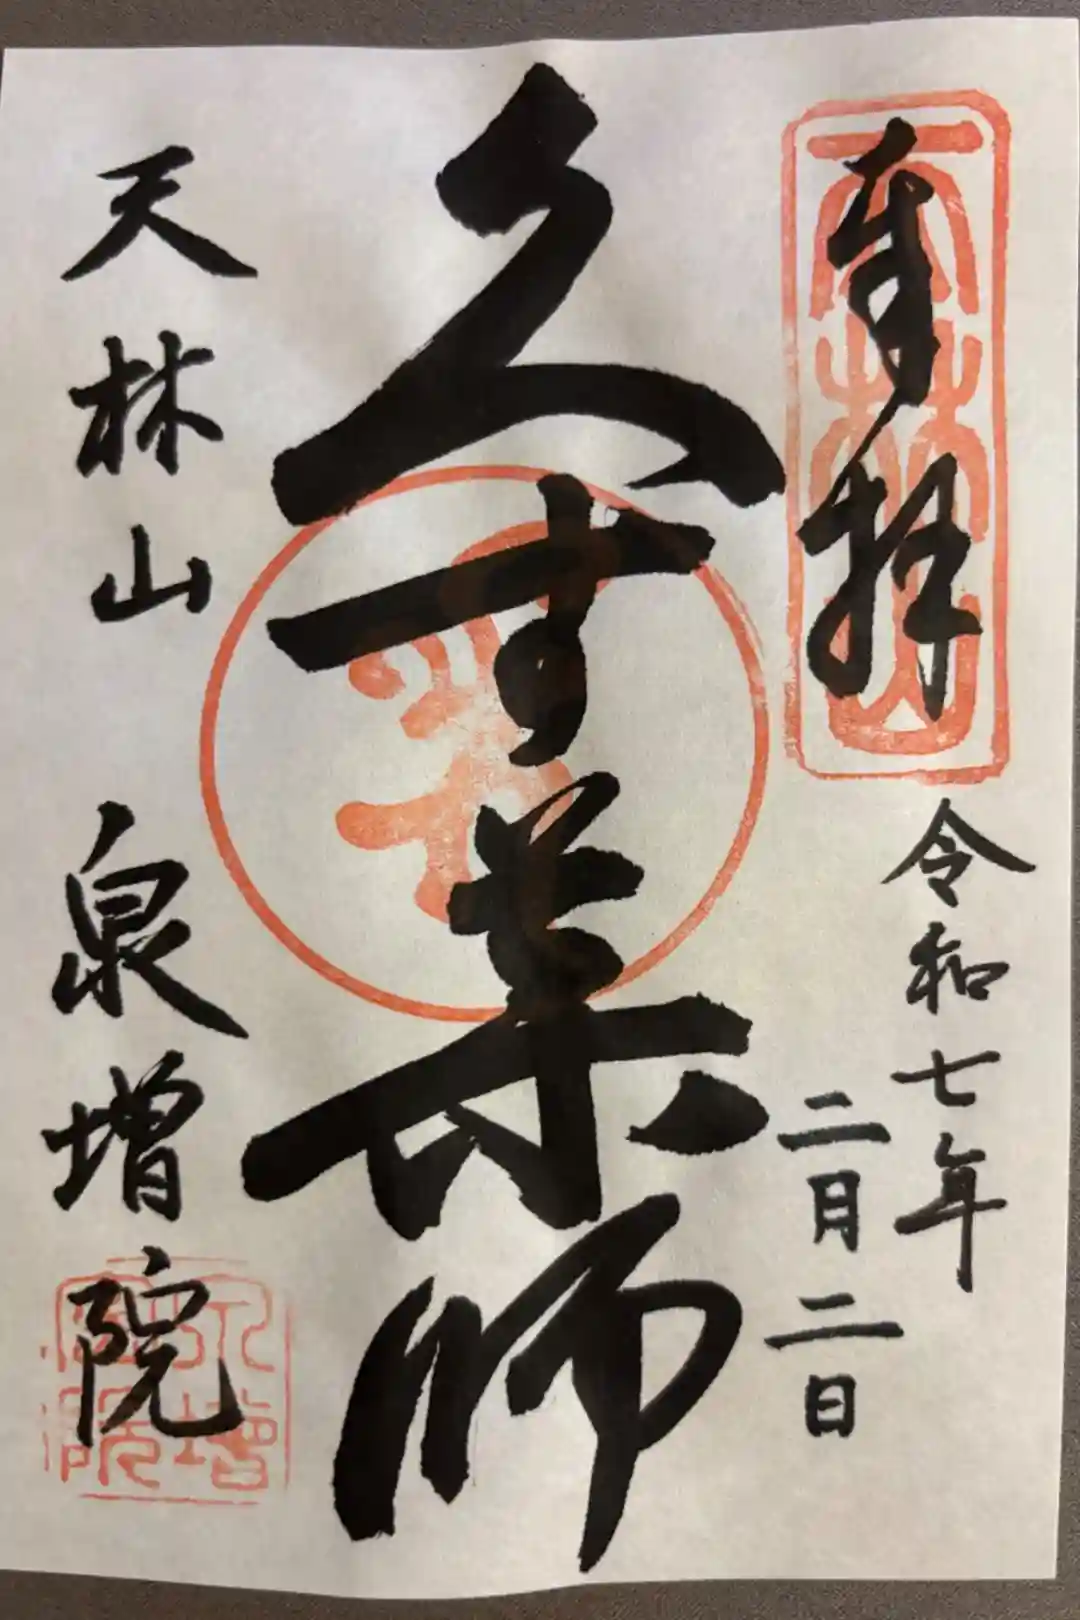 奉拝
令和七年
二月二日
久すす薬師
天林山
泉増院